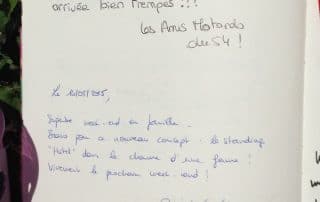 arrivée bien trempés !!!
Les Amis Motards
du 54 !
Le
Superbe week-end en famille.
Bravo pour ce nouveau concept : le standing
"Hôtel" dans le charme d'une ferme !
Vivement le prochain week-end !